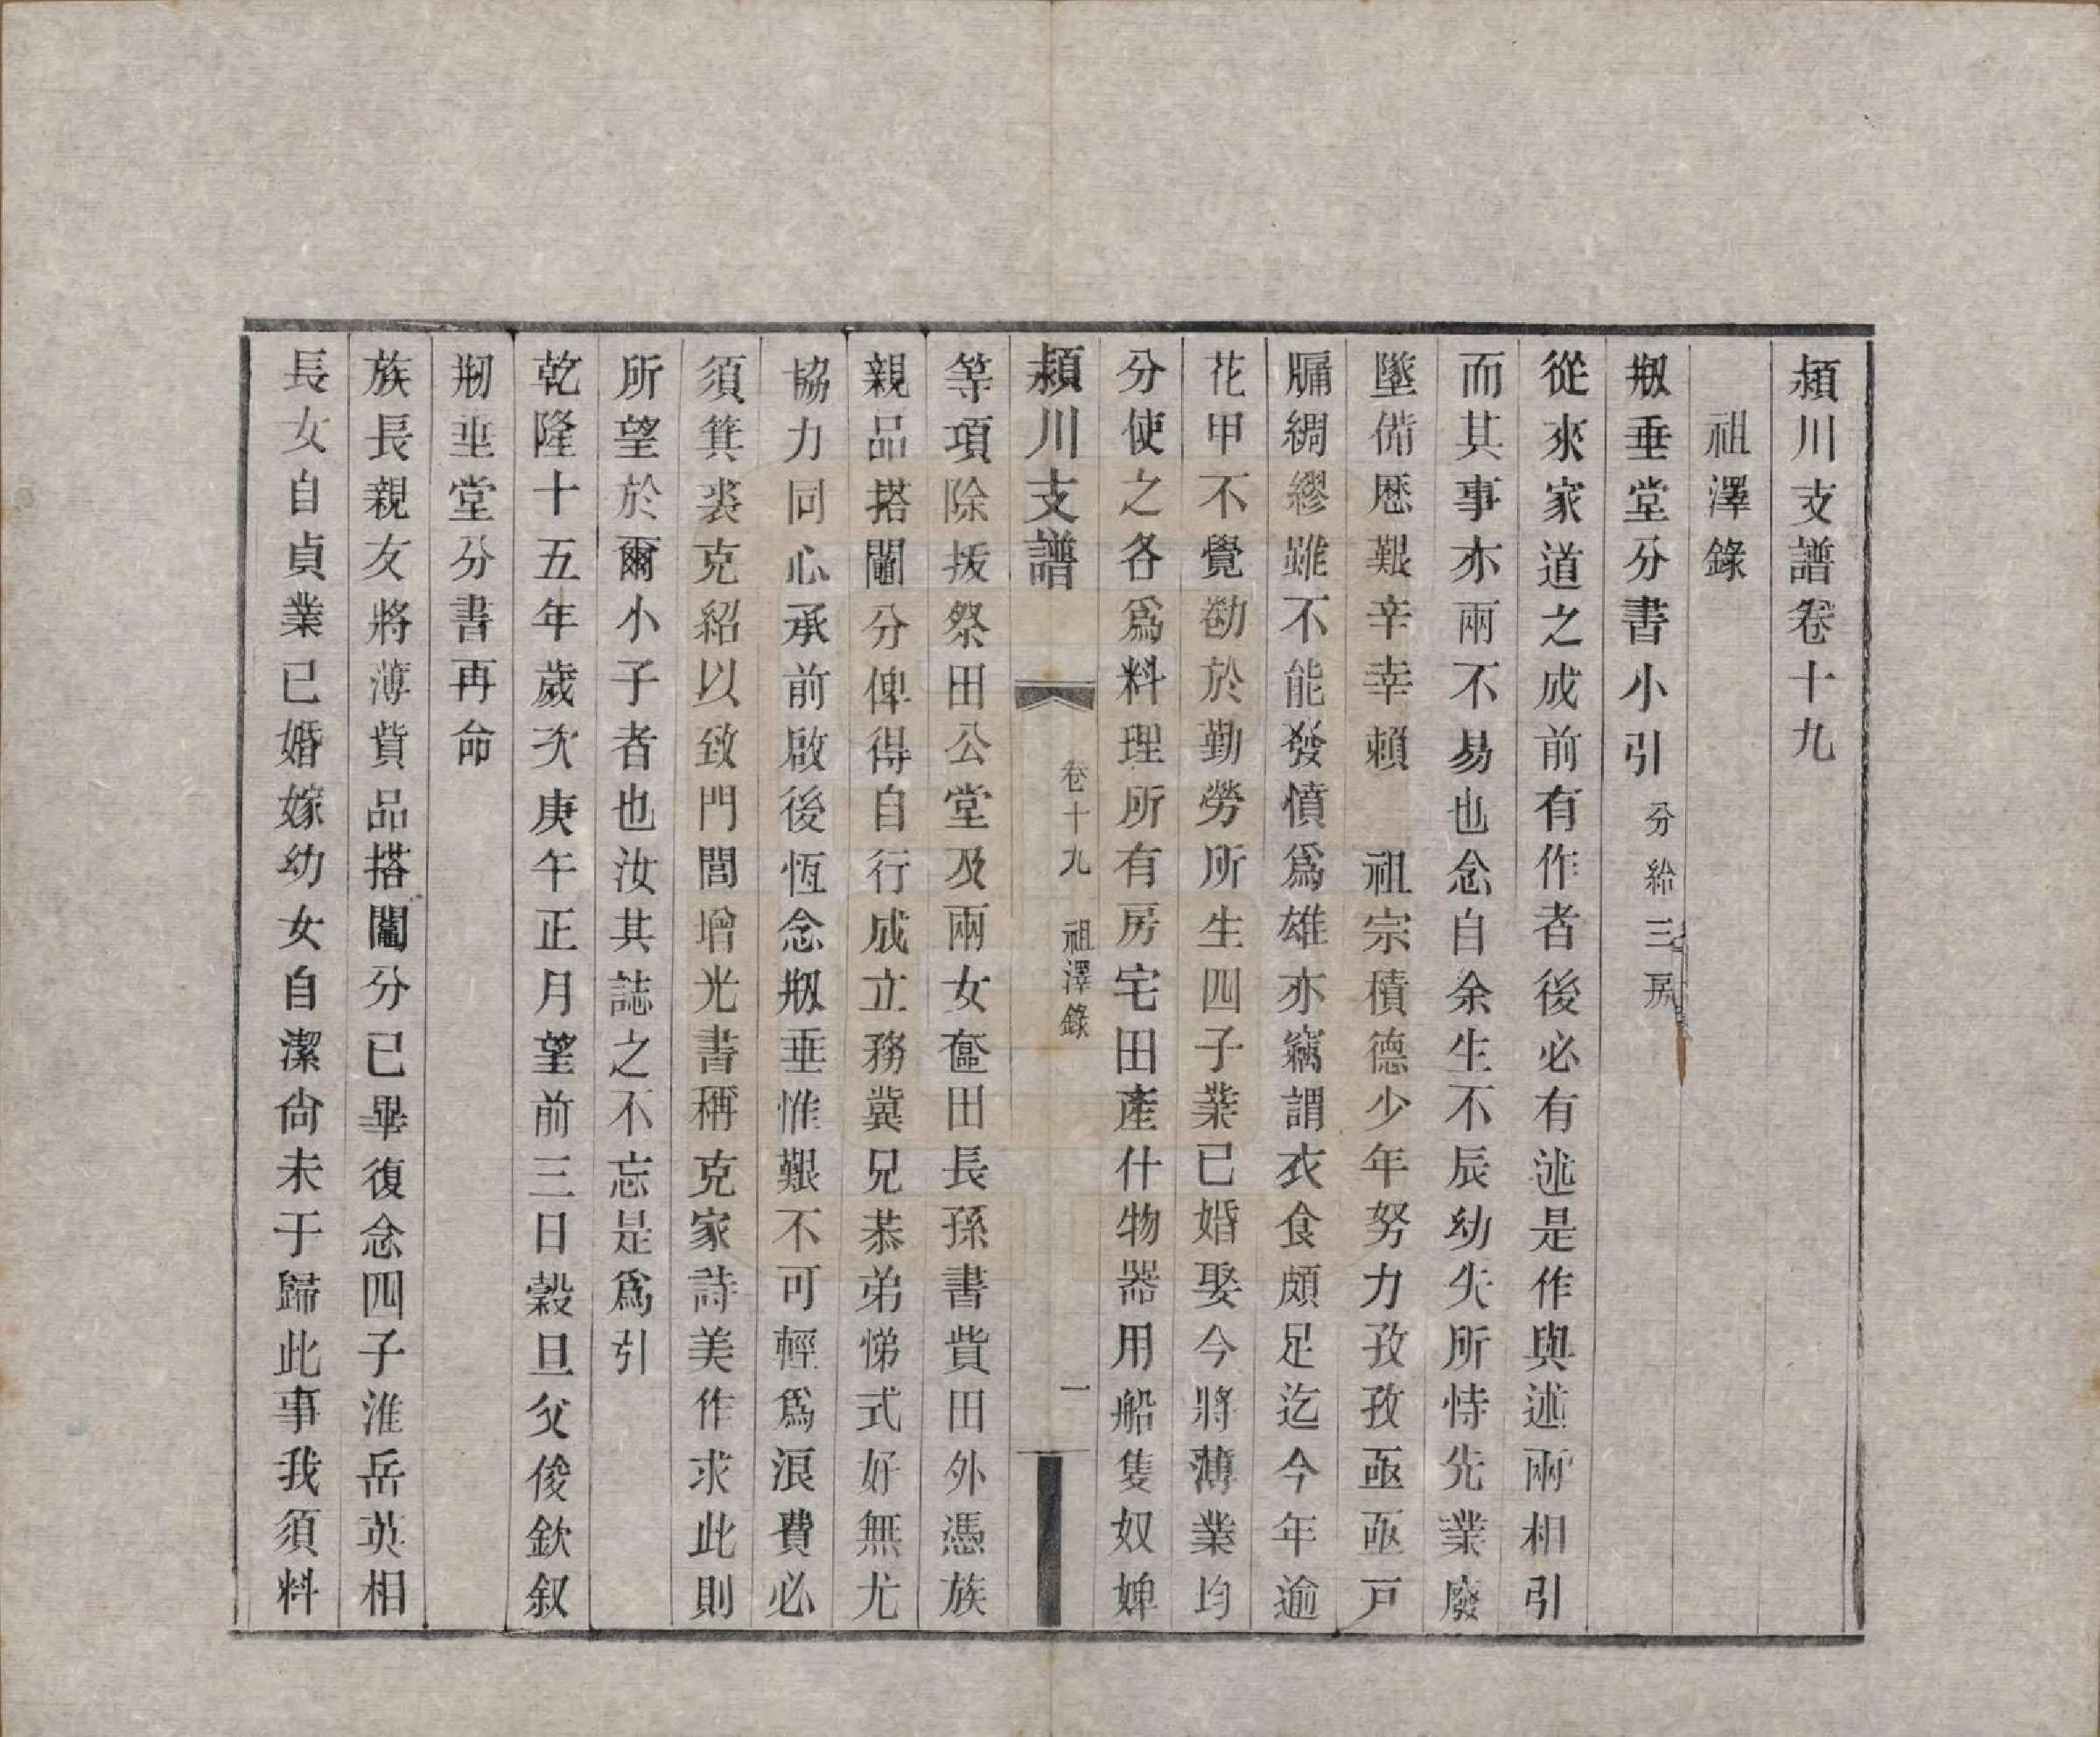 潁川支譜卷十九
祖澤錄
剏垂堂分書小引 分給三房
從來家道之成前有作者後必有述是作與述兩相引
而其事亦兩不易也念自余生不辰幼失所恃先業廢
墜備歷艱辛幸賴 祖宗積德少年努力孜孜亟亟戸
牖綢繆雖不能發憤爲雄亦竊謂衣食頗足迄今年逾
花甲不覺勌於勤勞所生四子業已婚娶今將薄業均
分使之各爲料理所有房宅田產什物器用船隻奴婢
潁川支譜 卷十九 祖澤錄 一
等項除拔祭田公堂及兩女奩田長孫書貲田外憑族
親品搭鬮分俾得自行成立務冀兄恭弟悌式好無尤
協力同心承前啟後恆念剏垂惟艱不可輕爲浪費必
須箕裘克紹以致門閭增光書稱克家詩美作求此則
所望於爾小子者也汝其誌之不忘是爲引
乾隆十五年歲次庚午正月望前三日穀旦父俊欽叙
剏垂堂分書再命
族長親友將薄貲品搭鬮分已畢復念四子淮岳英相
長女自貞業已婚嫁幼女自潔尚未于歸此事我須料